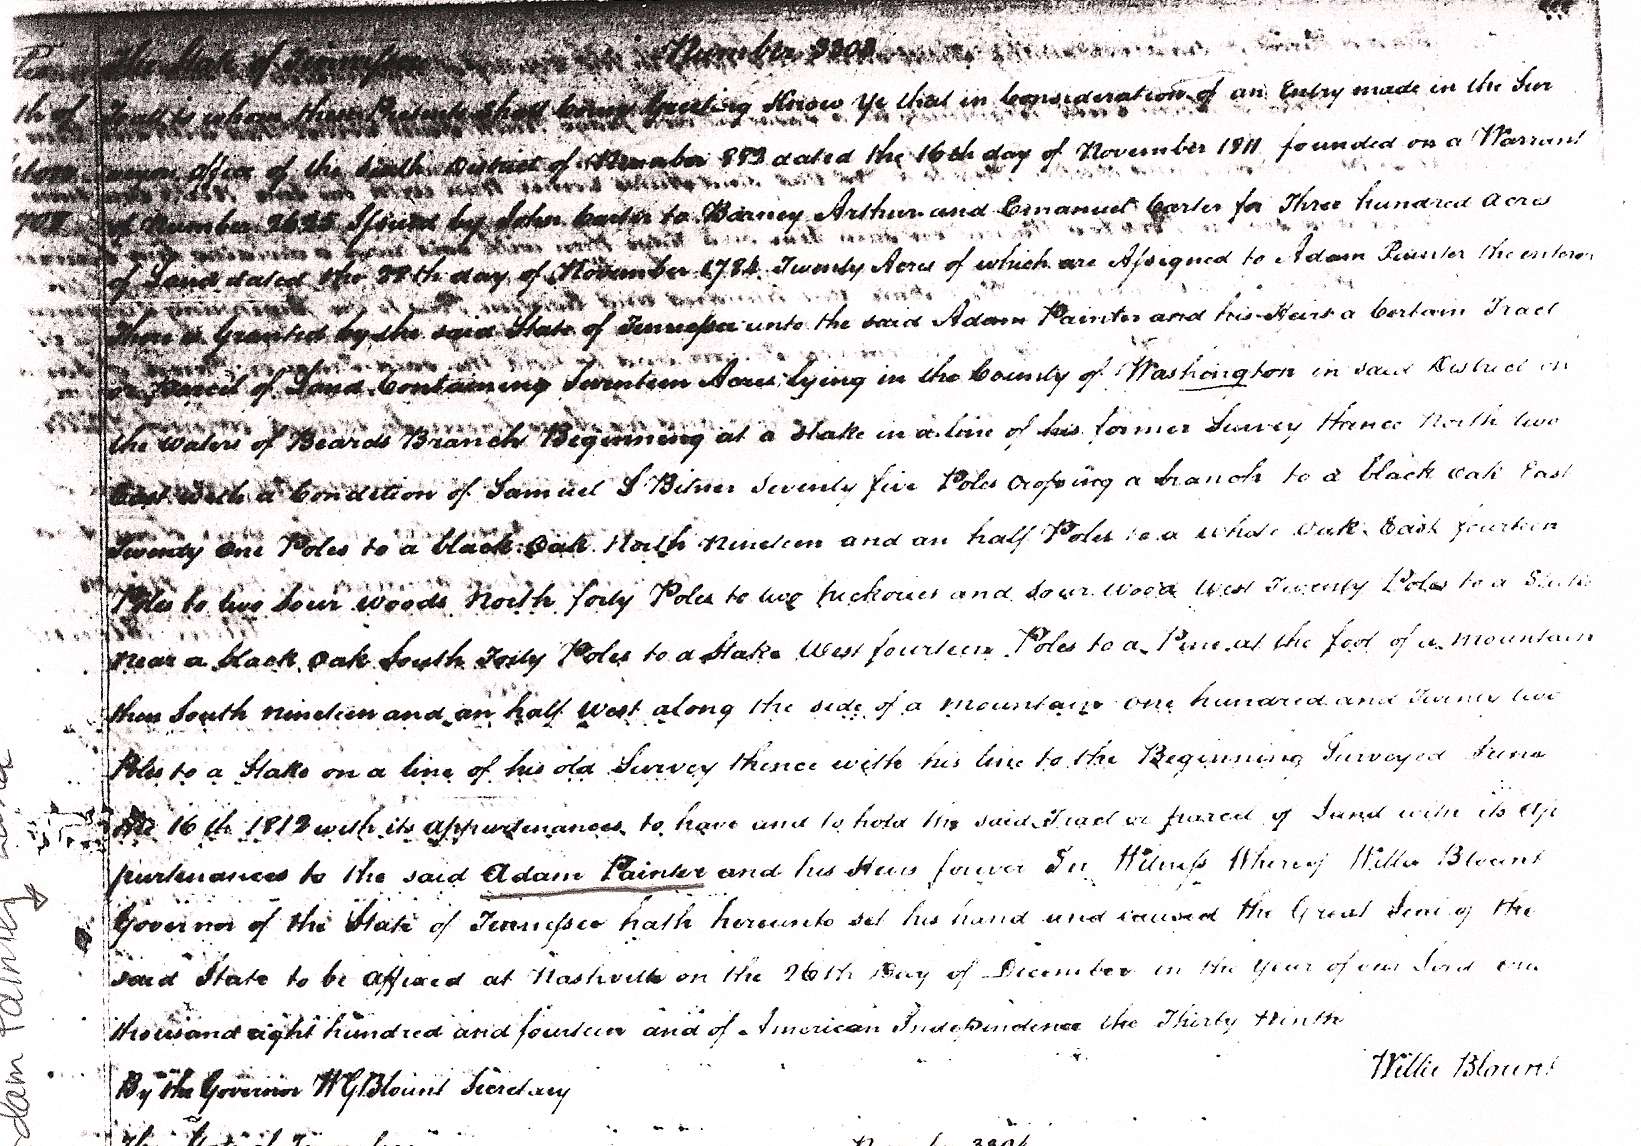 The State of Tennessee Number 3203
To all to whom these Presents shall Come Greeting Know Ye that in Consideration of an Entry made in the Sur
veyors office of the Sixth District of Number 883 dated the 16th day of November 1811 founded on a Warrant
of Number 2625 Issued by John Carter to Barney Arthur and Emanuel Carter for Three hundred acres
of Land dated the day of November 1784 Twenty Acres of which are Assigned to Adam Painter the enterer
There is Granted by the said State of Tennessee unto the said Adam Painter and his Heirs a Certain Tract
or Parcel of Land Containing Seventeen Acres lying in the County of Washington in said District on
the waters of Beards Branch Beginning at a Stake in a line of his former Survey thence North two
East with a Condition of Samuel S Bitner Seventy five Poles crossing a branch to a black oak East
Twenty One Poles to a black Oak North nineteen and an half Poles to a white oak East fourteen
Poles to two Sour woods North forty Poles to two hickories and sour wood West Twenty Poles to a Stake
Near a black Oak South Forty Poles to a Stake West fourteen Poles to a Pine at the foot of a mountain
then South nineteen and an half West along the side of a mountain one hundred and Twenty two
Poles to a Stake on a line of his old Survey thence with his line to the Beginning Surveyed June
the 16th 1812 with its appurtenances to have and to hold the said Tract or parcel of Land with its ap
purtenances to the said Adam Painter and his Heirs forever In Witness Whereof Willie Blount
Governor of the State of Tennessee hath hereunto set his hand and caused the Great Seal of the
said State to be affixed at Nashville on the 26th Day of December in the year of our Lord one
thousand eight hundred and fourteen and of American Independence the Thirty Ninth
Willie Blount
By the Governor W G Blount Secretary
The State of Tennessee Number 3204